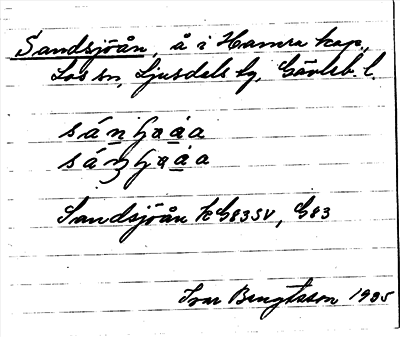 Sandsjöån, å i Hamra kap.,
Los sn, Ljusdals tg, Gävleb. l.
Sandsjöån KG83SV, G83
Ivar Bengtsson 1935